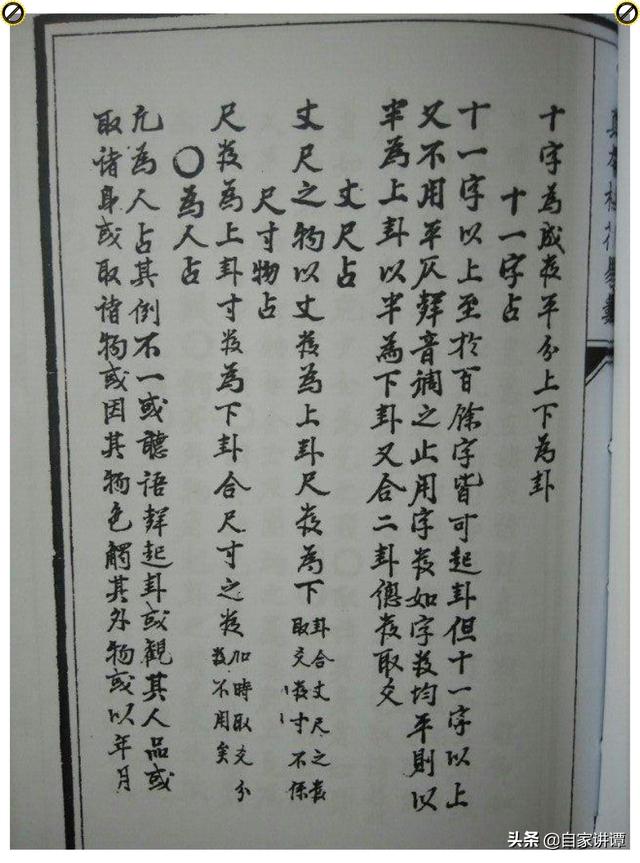 十字為成數平分上下為卦
十一字占
十一字以上至於百餘字皆可起卦但十一字以上
又不用平仄聲音調之止用字數如字數均平則以
半為上卦以半為下卦又合二卦總數取爻
丈尺占
丈尺之物以丈數為上卦尺數為下卦合丈尺之數
取爻數寸不係
尺寸物占
尺數為上卦寸數為下卦合尺寸之數加時取爻分
數不用矣
〇為人占
凡為人占其例不一或聽語聲起卦或觀其人品或
取諸身或取諸物或因其物色觸其外物或以年月
头条@自家讲谭